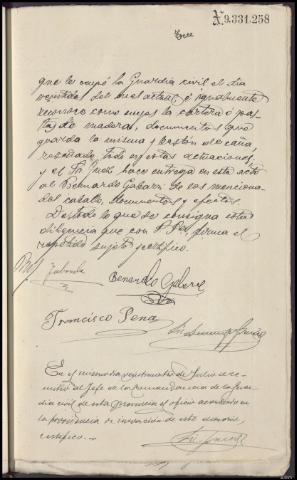 N. 9.331.258
que le ocupó la Guardia civil el día
veintidós del mes actual, é igualmente
reconoce como suyas la cartera ó por-
tas de madera, documentos que
guarda la misma y bastón de caña,
reseñado todo en estas actuaciones,
y el Sr. Juez hace entrega en este acto
al Bernardo Gabarri de los menciona-
dos caballo, documentos y efectos.
De todo lo que se consigna esta
diligencia que con S. Sª firma el
repetido sujeto certifico.
Bernardo Gabarri
Francisco Pena
En el mismo día veintinueve de Julio se re-
mitió al Jefe de la Comandancia de la Guar-
dia civil de esta provincia el oficio acordado en
la providencia de incoación de este sumario,
certifico.